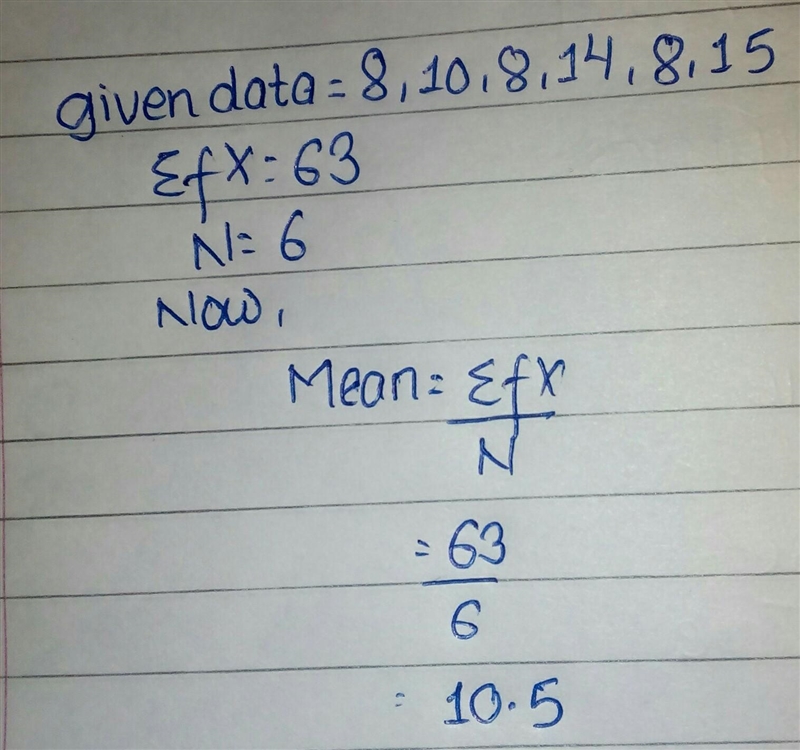 given data = 8, 10, 8, 14, 8, 15
Σfx = 63
N = 6
Now,
Mean = Σfx
N
= 63
6
= 10.5